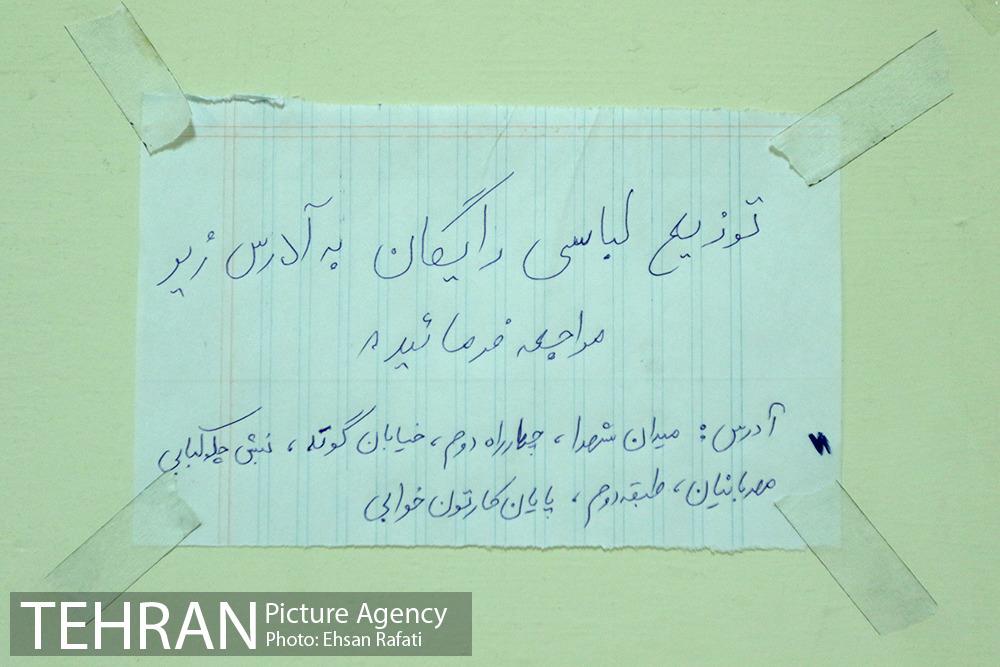 توزیع لباس رایگان به آدرس زیر
مراجعه فرمائید
آدرس: میدان شهدا، چهارراه دوم، خیابان گوته، نبش
مهربانیان، طبقه دوم، پایان کارتون خوابی
TEHRAN Picture Agency
Photo: Ehsan Rafati